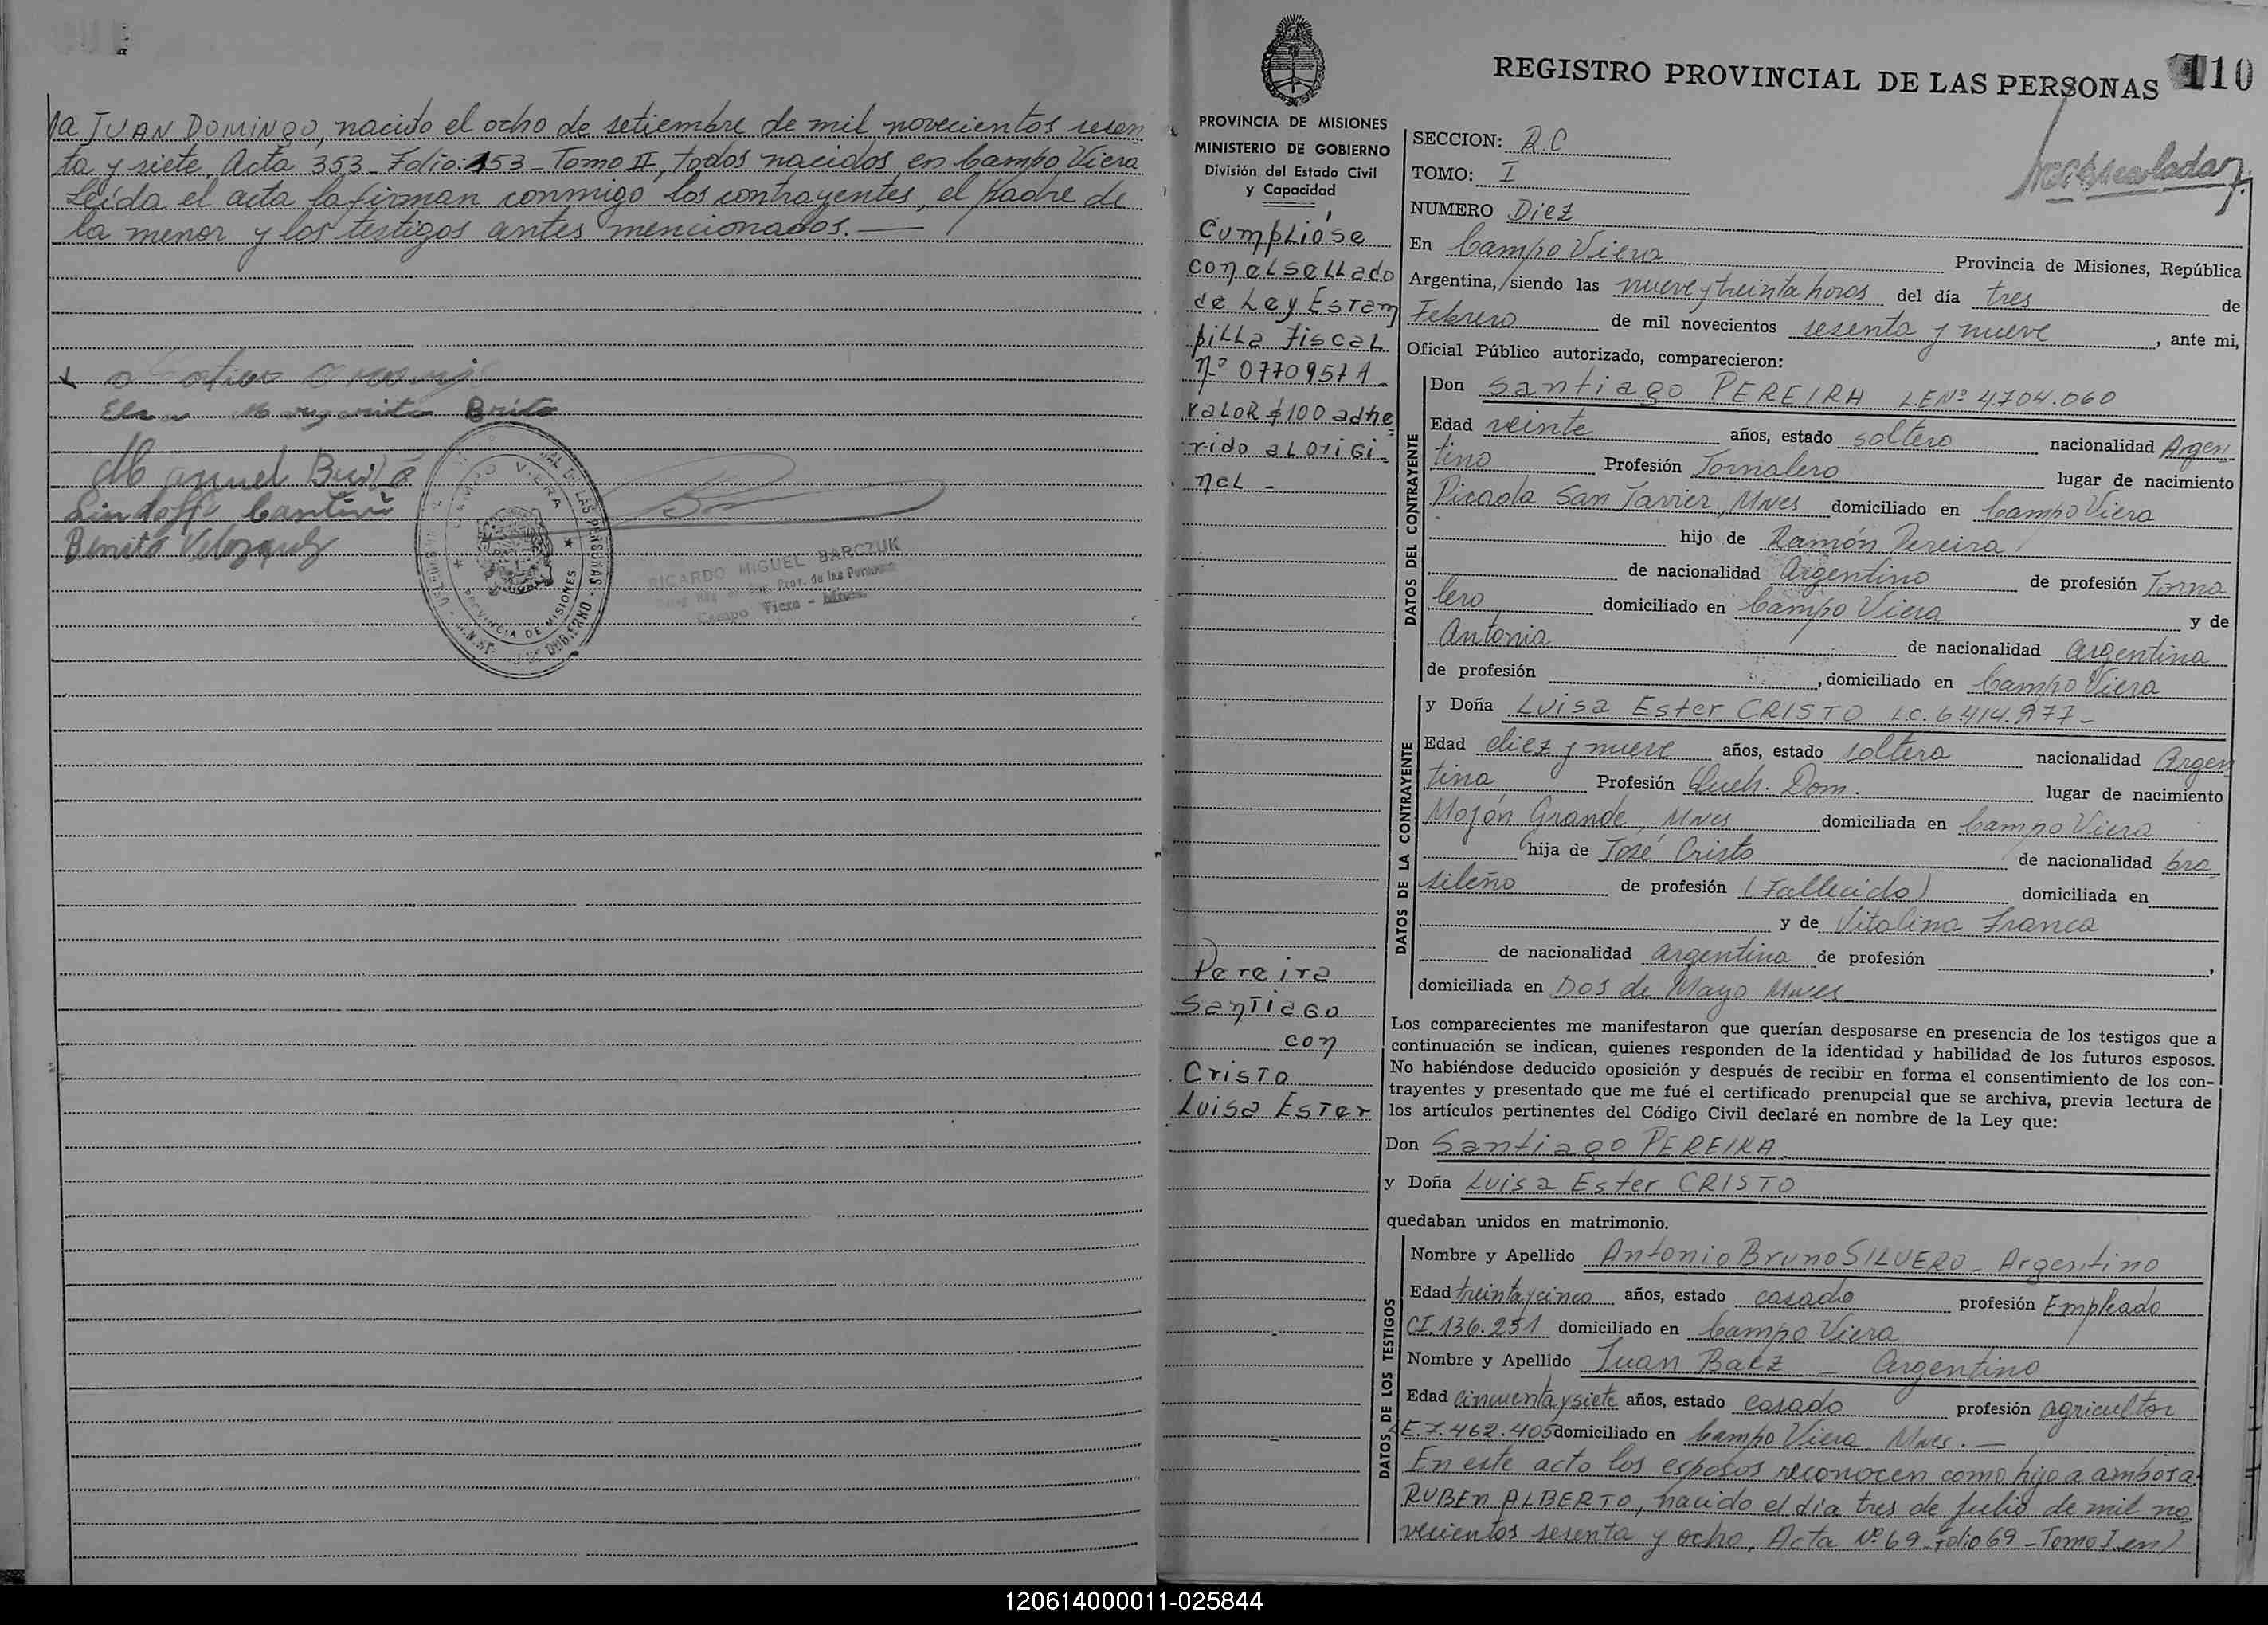 la JUAN DOMINGO, nacido el ocho de setiembre de mil novecientos sesen
ta y siete, Acta 353 - Folio: 153 - Tomo II, todos nacidos en Campo Viera
Leída el acta la firman conmigo los contrayentes, el padre de
la menor y los testigos antes mencionados. —
Margarita Brito
Manuel Brito
Lindolfo
Benito Velozquez
CAMPO VIERA
PROVINCIA DE MISIONES
RICARDO MIGUEL BARCZUK
Prov. de las Personas
Campo Viera - Mnes.
REGISTRO PROVINCIAL DE LAS PERSONAS 110
PROVINCIA DE MISIONES
MINISTERIO DE GOBIERNO
División del Estado Civil
y Capacidad
Cumplióse
con el sellado
de Ley Estam
pilla Fiscal
nº 0770957 A
valor $100 adhe
rido al origi
nal -
Pereira
Santiago
con
Cristo
Luisa Ester
SECCION: R.C
TOMO: I
NUMERO Diez
En Campo Viera Provincia de Misiones, República
Argentina, siendo las nueve y treinta horas del día tres de
Febrero de mil novecientos sesenta y nueve, ante mi,
Oficial Público autorizado, comparecieron:
DATOS DEL CONTRAYENTE
Don Santiago PEREIRA L.E Nº 4.704.060
Edad veinte años, estado soltero nacionalidad Argen
tino Profesión Jornalero lugar de nacimiento
Picada San Javier, Mnes domiciliado en Campo Viera
hijo de Ramón Pereira
de nacionalidad Argentino de profesión Jorna
lero domiciliado en Campo Viera y de
Antonia de nacionalidad argentina
de profesión , domiciliado en Campo Viera
DATOS DE LA CONTRAYENTE
y Doña Luisa Ester CRISTO L.C. 6.414.977 -
Edad diez y nueve años, estado soltera nacionalidad Argen
tina Profesión Queh. Dom. lugar de nacimiento
Mojón Grande, Mnes domiciliada en Campo Viera
hija de José Cristo de nacionalidad bra
sileño de profesión (Fallecido) domiciliada en
y de Vitalina Franca
de nacionalidad argentina de profesión ,
domiciliada en Dos de Mayo Mnes
Los comparecientes me manifestaron que querían desposarse en presencia de los testigos que a
continuación se indican, quienes responden de la identidad y habilidad de los futuros esposos.
No habiéndose deducido oposición y después de recibir en forma el consentimiento de los con-
trayentes y presentado que me fué el certificado prenupcial que se archiva, previa lectura de
los artículos pertinentes del Código Civil declaré en nombre de la Ley que:
Don Santiago PEREIRA
y Doña Luisa Ester CRISTO
quedaban unidos en matrimonio.
DATOS DE LOS TESTIGOS
Nombre y Apellido Antonio Bruno SILVERO - Argentino
Edad treinta y cinco años, estado casado profesión Empleado
CI. 136.251 domiciliado en Campo Viera
Nombre y Apellido Juan Baez - Argentino
Edad cincuenta y siete años, estado casado profesión agricultor
L.E. 7.462.405 domiciliado en Campo Viera Mnes. —
En este acto los esposos reconocen como hijo a ambos a:
RUBEN ALBERTO, nacido el día tres de Julio de mil no
vecientos sesenta y ocho, Acta Nº 69 - Folio 69 - Tomo I en/
120614000011-025844